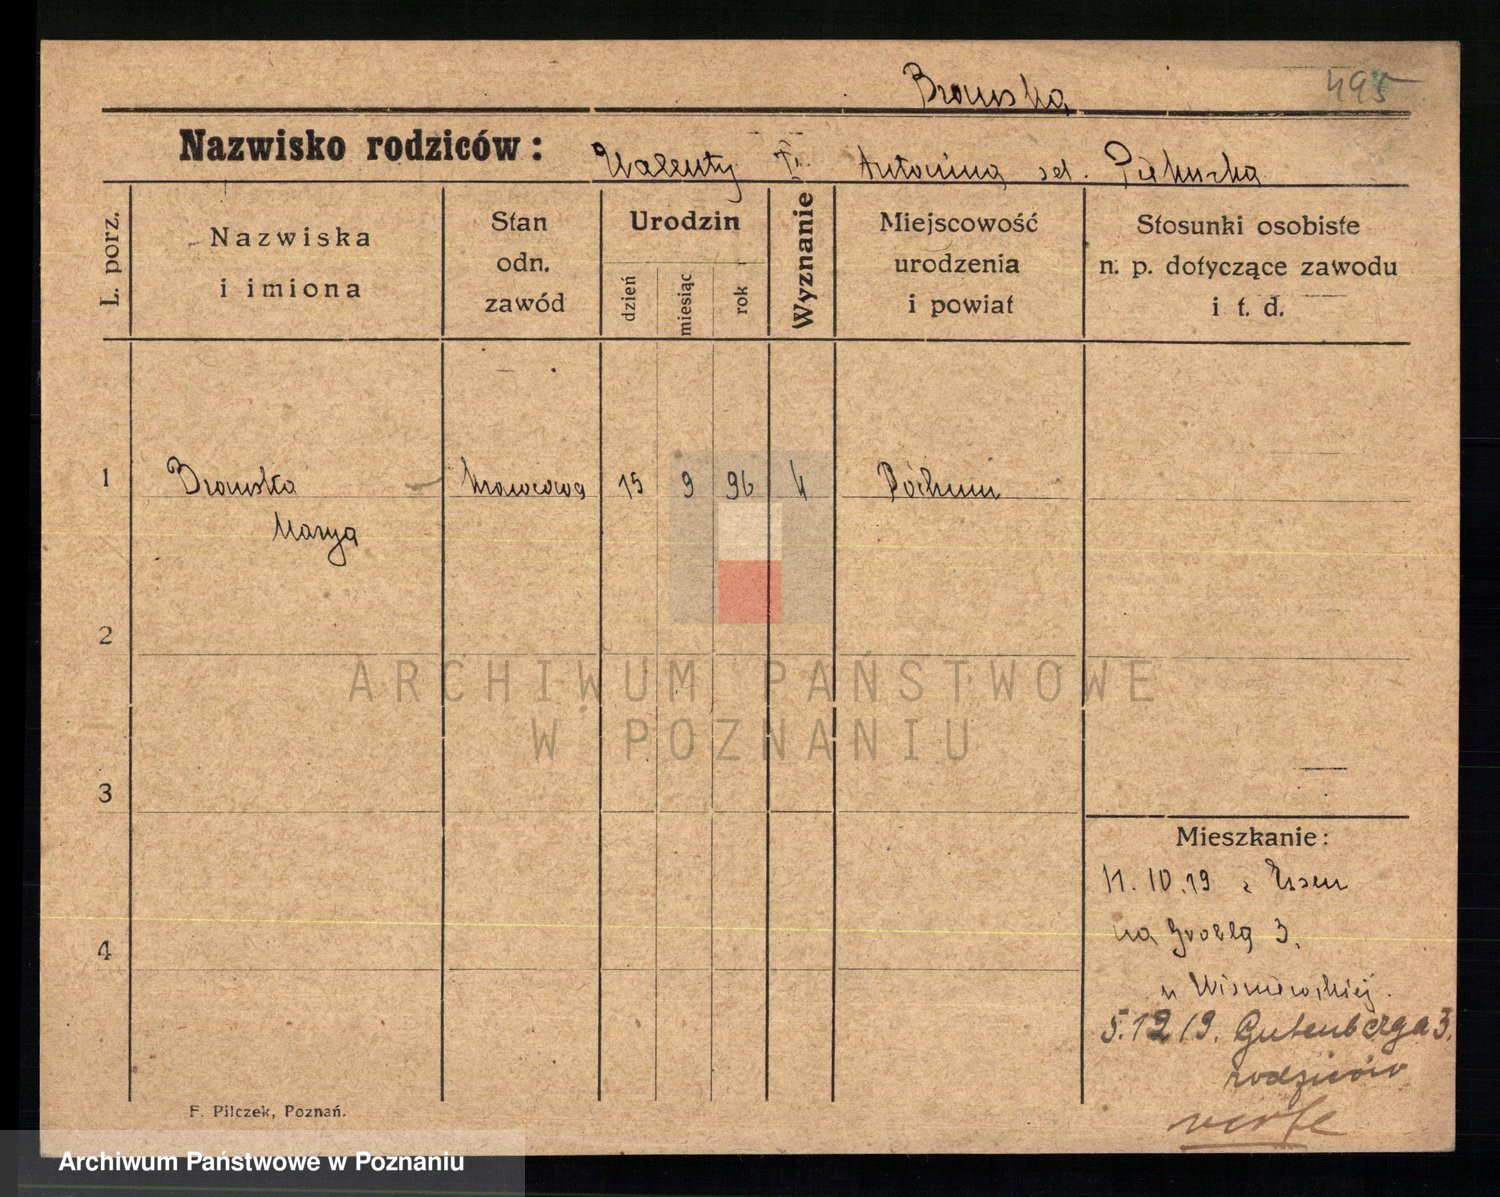 Brauska 495
Nazwisko rodziców: Walenty Antonina
L. porz.
Nazwiska i imiona
Stan odn. zawód
Urodzin
dzień
miesiąc
rok
Wyznanie
Miejscowość urodzenia i powiat
Stosunki osobiste n. p. dotyczące zawodu i t. d.
1 Brauska krawcowa 15 9 96 k
Marya
2
ARCHIWUM PAŃSTWOWE
W POZNANIU
3
Mieszkanie:
11.10.19 z Essen
na Grobla 3.
4
u Wisniewskiej.
5.12 19. Gutenberga 3.
rodziców
verte
F. Pilczek, Poznań.
Archiwum Państwowe w Poznaniu